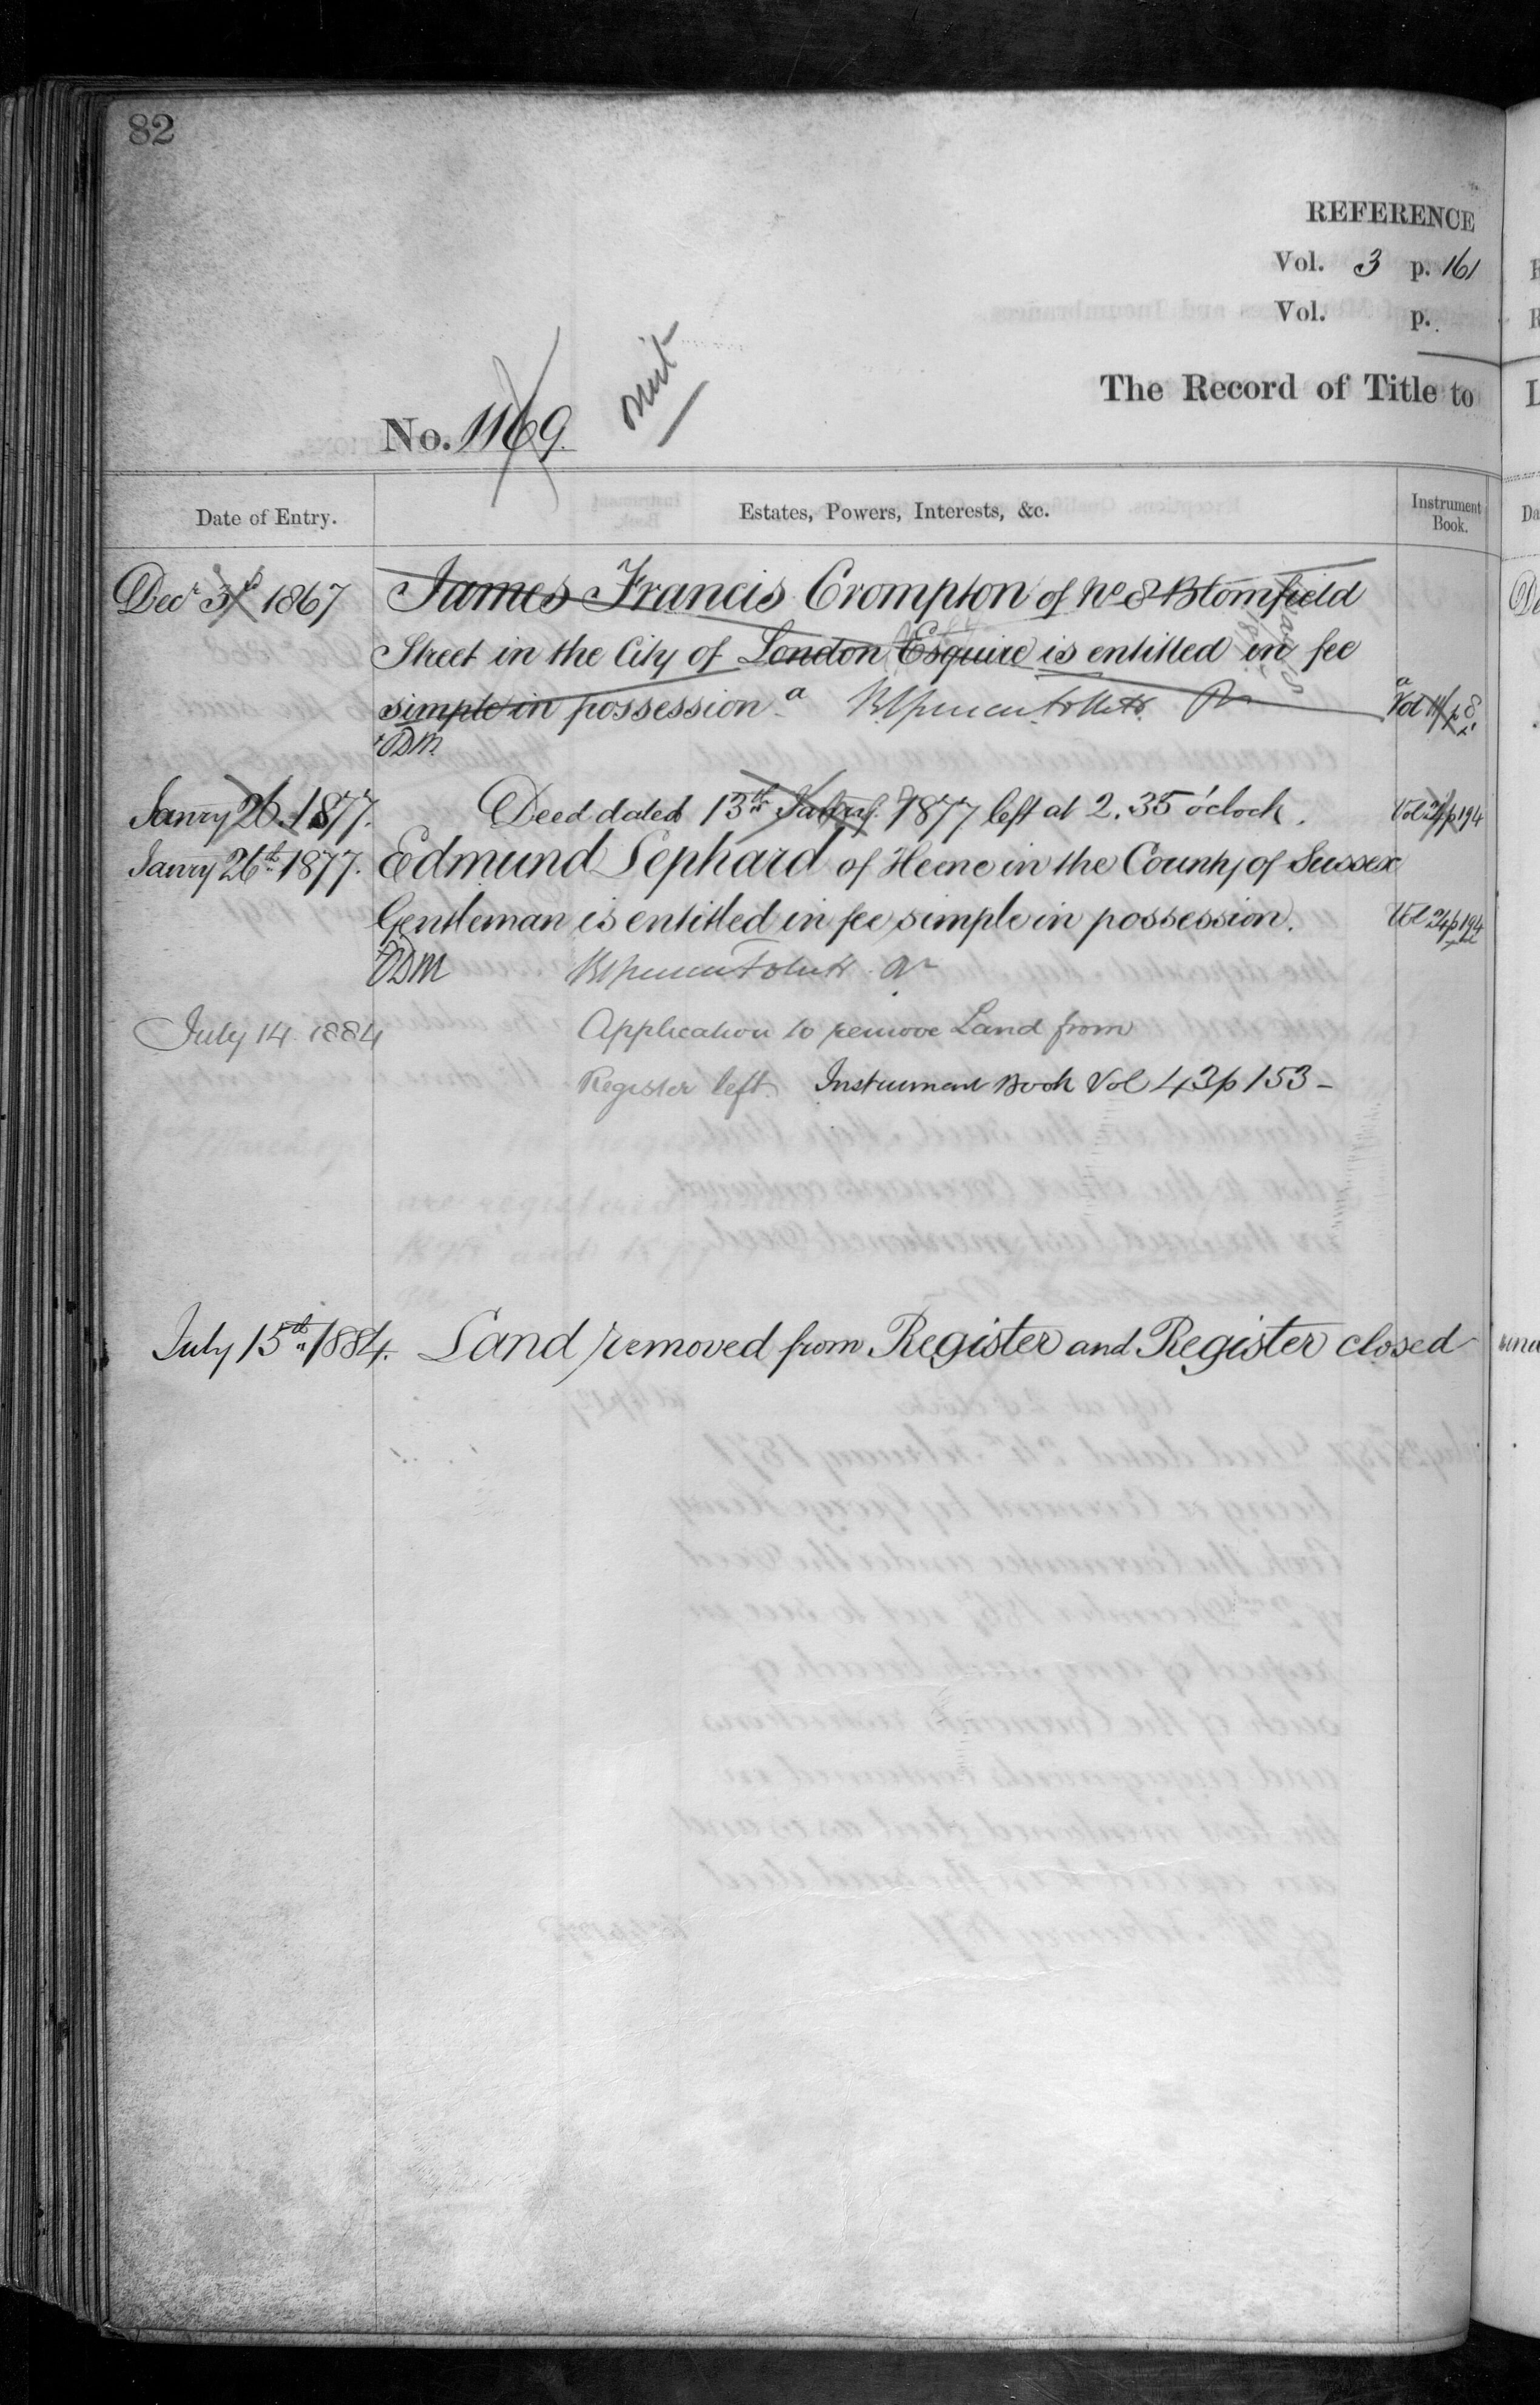 82
REFERENCE
Vol. 3 p. 161
Vol. p.
The Record of Title to
No. 1169. omit
Date of Entry. Estates, Powers, Interests, &c. Instrument Book.
Decr 3rd 1867 James Francis Crompton of No 8 Blomfield
Street in the City of London Esquire is entitled in fee
simple in possession a Vol 11 p 8
Janry 26. 1877. Deed dated 13th Janry. 1877 left at 2.35 o'clock. Vol 24 p 194
Janry 26th 1877. Edmund Lephard of Heene in the County of Sussex
Gentleman is entitled in fee simple in possession. Vol 24 p 194
July 14. 1884 Application to remove Land from
Register left. Instrument Book Vol 43 p 153 -
July 15th 1884. Land removed from Register and Register closed